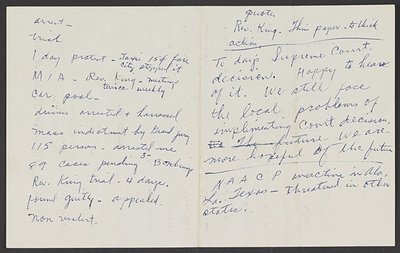 arrest -
trial
1 day protest - Taxis 15¢ fare
City stopped it
M I A - Rev. King - meetings
twice weekly
Car pool -
drivers arrested & harassed
mass indictment by Grand jury
115 persons - arrested me
89 cases pending 3 - Bombings
Rev. King trial - 4 days.
found guilty - appealed.
Non violent.
quote
Rev. King - Thin paper - to thick
action.
To day, Supreme Court
decision. Happy to hear
of it. We still face
the local problems of
implementing Court decision.
The future We are
more hopeful of the future
N A A C P inactive in Ala,
La. Texas - threatened in other
states.